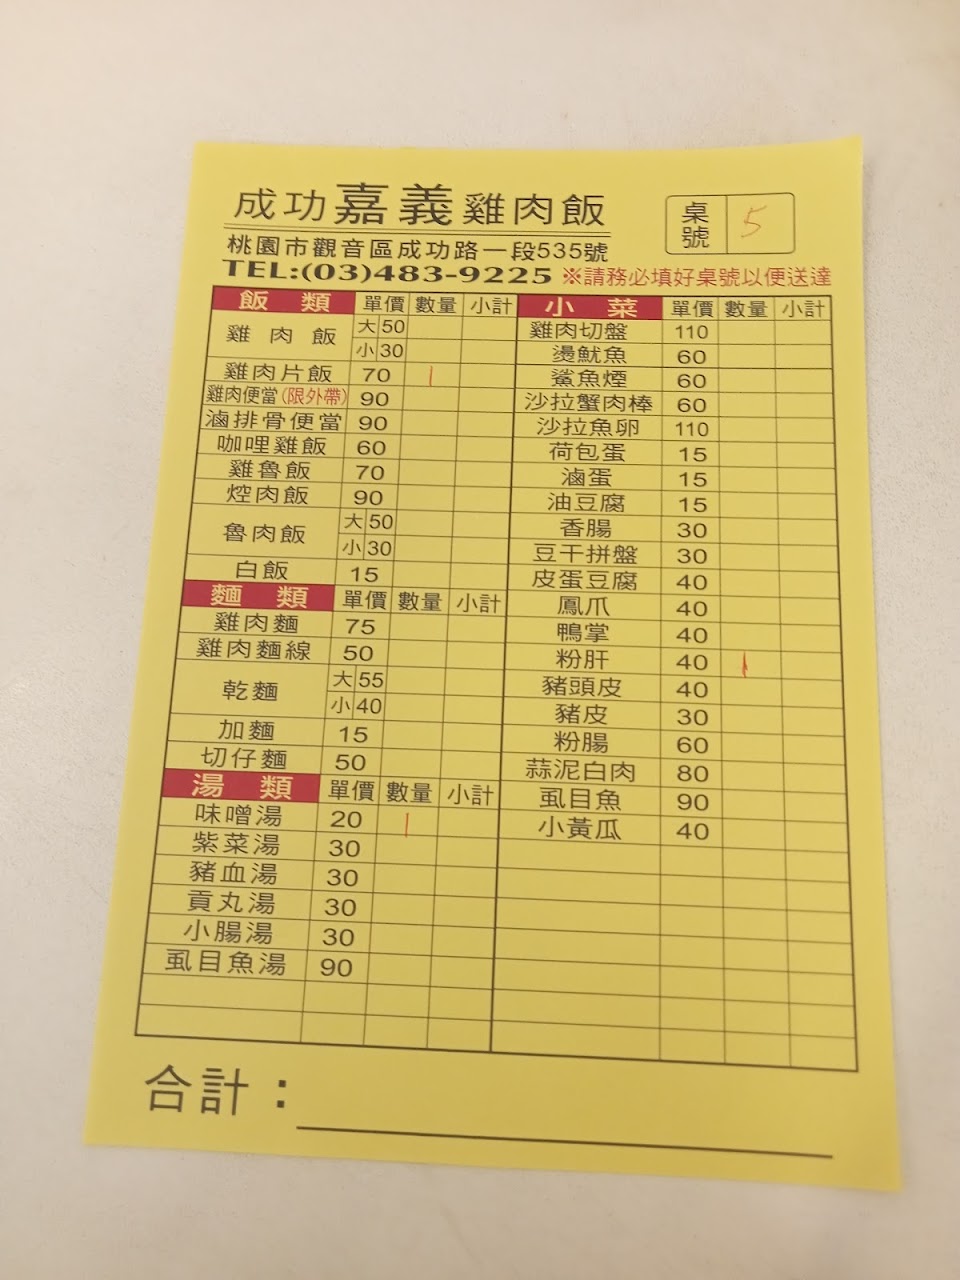 成功嘉義雞肉飯
桌號 5
桃園市觀音區成功路一段535號
TEL:(03)483-9225 ※請務必填好桌號以便送達
飯類 單價 數量 小計
雞肉飯 大 50
小 30
雞肉片飯 70 1
雞肉便當(限外帶) 90
滷排骨便當 90
咖哩雞飯 60
雞魯飯 70
焢肉飯 90
魯肉飯 大 50
小 30
白飯 15
麵類 單價 數量 小計
雞肉麵 75
雞肉麵線 50
乾麵 大 55
小 40
加麵 15
切仔麵 50
湯類 單價 數量 小計
味噌湯 20 1
紫菜湯 30
豬血湯 30
貢丸湯 30
小腸湯 30
虱目魚湯 90
小菜 單價 數量 小計
雞肉切盤 110
燙魷魚 60
鯊魚煙 60
沙拉蟹肉棒 60
沙拉魚卵 110
荷包蛋 15
滷蛋 15
油豆腐 15
香腸 30
豆干拼盤 30
皮蛋豆腐 40
鳳爪 40
鴨掌 40
粉肝 40 1
豬頭皮 40
豬皮 30
粉腸 60
蒜泥白肉 80
虱目魚 90
小黃瓜 40
合計：